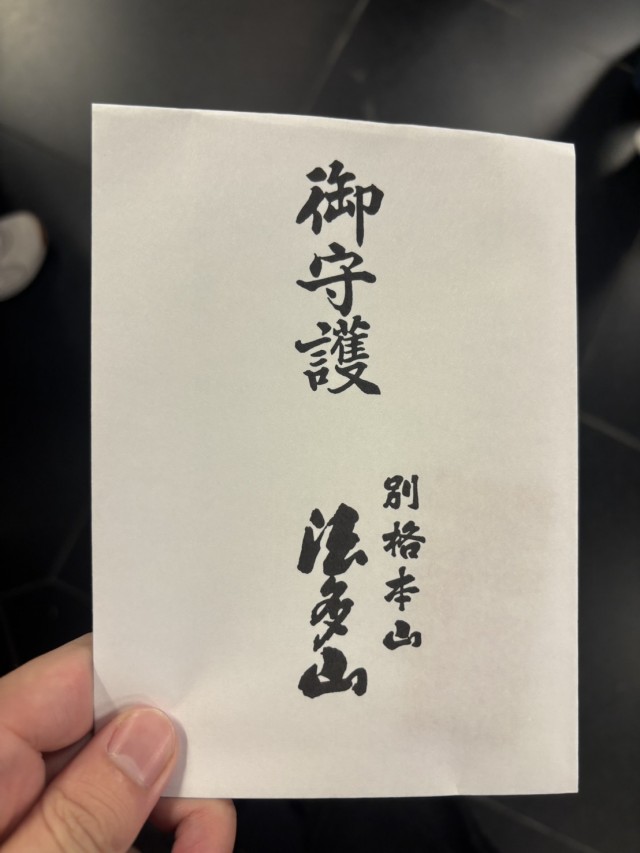 御守護
別格本山
法多山